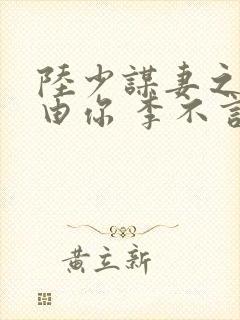 陸少謀妻之
由你 李不言
黃立新